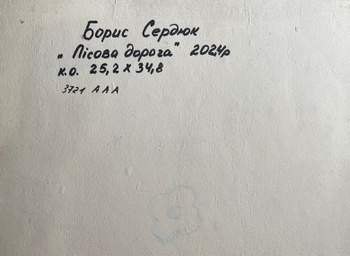 Борис Сердюк
„ Лісова дорога" 2024р
к.о. 25,2 х 34,8
3721 ААА